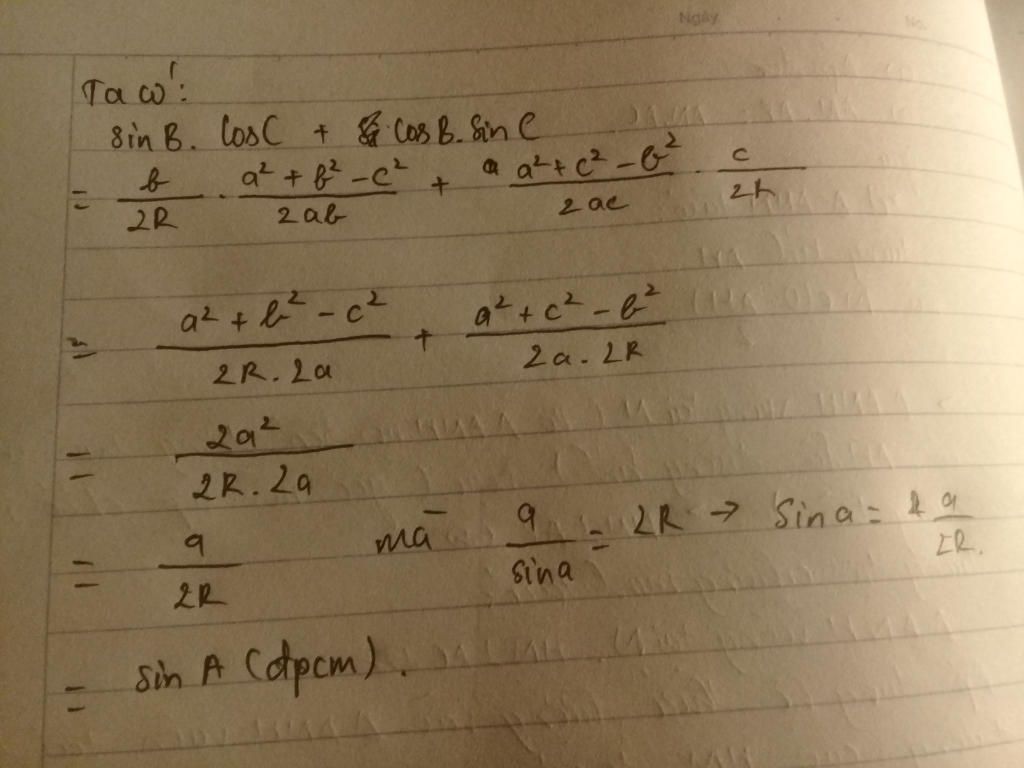 Ngày No.
Ta có:
sin B. cos C + cos B. sin C
= b/2R . a² + b² - c²/2ab + a² + c² - b²/2ac . c/2R
= a² + b² - c²/2R. 2a + a² + c² - b²/2a. 2R
= 2a²/2R. 2a
= a/2R mà a/sin a = 2R → sin a = a/2R.
= sin A (đpcm).